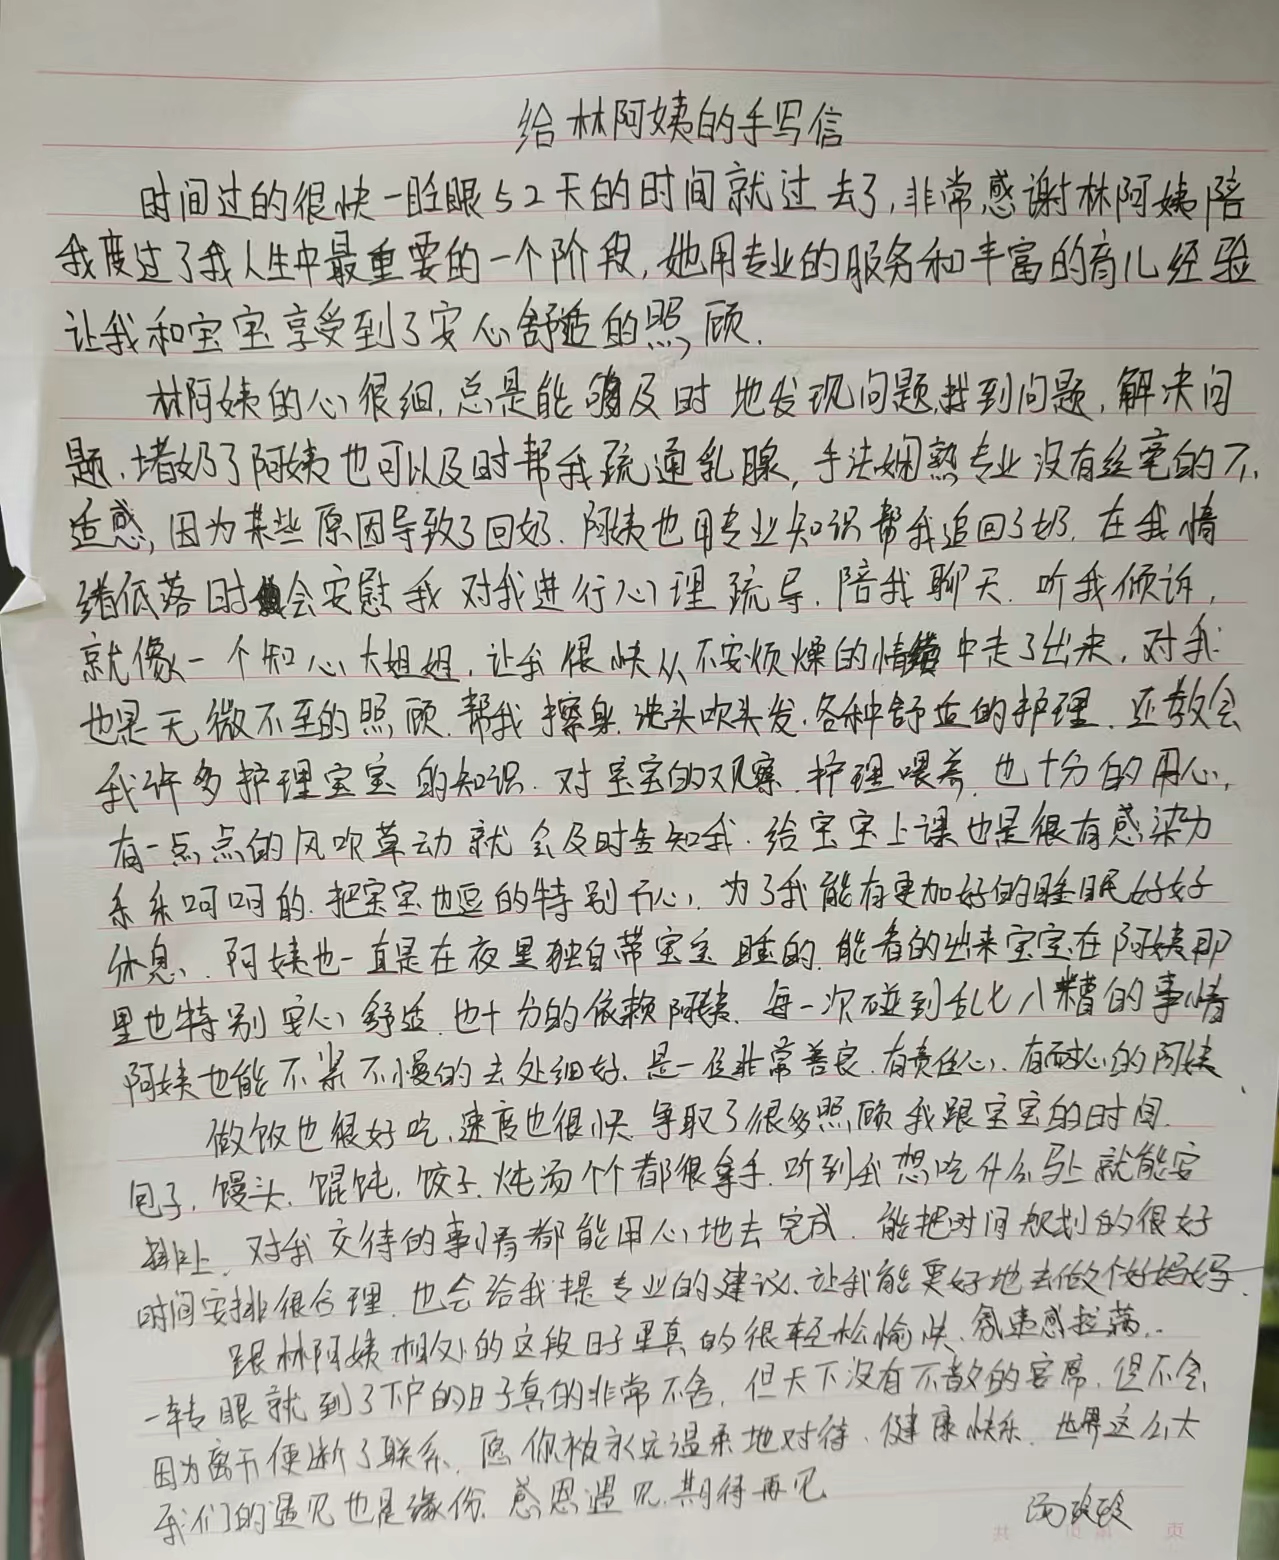 给林阿姨的手写信
时间过的很快一眨眼52天的时间就过去了,非常感谢林阿姨陪
我度过了我人生中最重要的一个阶段,她用专业的服务和丰富的育儿经验
让我和宝宝享受到了安心舒适的照顾.
林阿姨的心很细,总是能够及时地发现问题,找到问题,解决问
题、堵奶了阿姨也可以及时帮我疏通乳腺,手法娴熟专业没有丝毫的不
适感,因为某些原因导致了回奶.阿姨也用专业知识帮我追回了奶,在我情
绪低落时会安慰我对我进行心理疏导.陪我聊天.听我倾诉,
就像一个知心大姐姐,让我很快从不安烦燥的情绪中走了出来.对我
也是无微不至的照顾.帮我擦身.洗头吹头发.各种舒适的护理.还教会
我许多护理宝宝的知识.对宝宝的观察.护理喂养.也十分的用心,
有一点点的风吹草动就会及时告知我.给宝宝上课也是很有感染力
乐乐呵呵的.把宝宝也逗的特别开心.为了我能有更加好的睡眠好好
休息、阿姨也一直是在夜里独自带宝宝睡的.能看的出来宝宝在阿姨那
里也特别安心舒适.也十分的依赖阿姨.每一次碰到乱七八糟的事情
阿姨也能不紧不慢的去处细好.是一位非常善良.有责任心.有耐心的阿姨、
做饭也很好吃、速度也很快.争取了很多照顾我跟宝宝的时间.
包子.馒头.馄饨.饺子.炖汤个个都很拿手.听到我想吃什么马上就能安
排上.对我交待的事情都能用心地去完成.能把时间规划的很好
时间安排很合理.也会给我提专业的建议、让我能更好地去做个好妈妈.
跟林阿姨相处的这段日子里真的很轻松愉快、氛围感拉满..
一转眼就到了下户的日子真的非常不舍,但天下没有不散的宴席.但不会
因为离开便断了联系.愿你被永远温柔地对待.健康快乐.世界这么大
我们的遇见也是缘份.感恩遇见.期待再见
汤玲玲